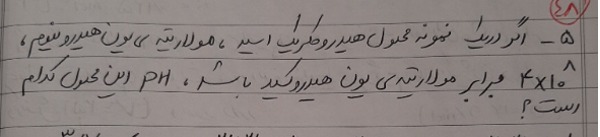 ۴۸
۵- اگر در یک نمونه محلول هیدروکلریک اسید، مولاریته ی یون هیدرونیوم،
۴×۱۰^۸ برابر مولاریته ی یون هیدروکسید باشد، PH این محلول کدام
است؟